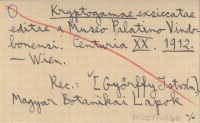 Kryptogamae exsiccatae
editae a Museo Palatino Vindo-
bonensi. Centuria XX. 1912.
— Wien.
Rec.: [Győrffy István]
Magyar Botanikai Lapok